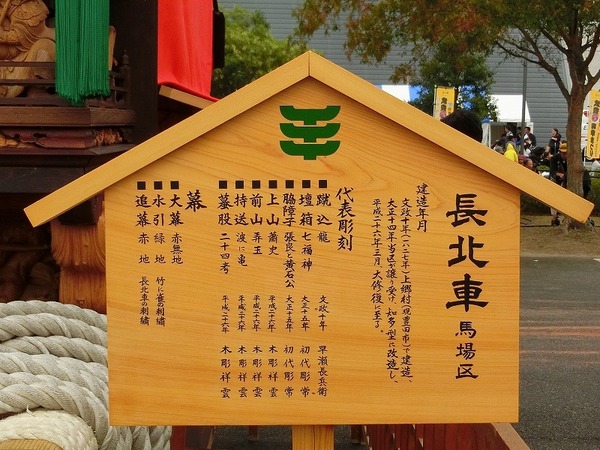 長北車 馬場区
建造年月
文政十年(一八二七年)上郷村(現豊田市)で建造、
大正十四年当区が譲り受け、知多型に改造し、
平成二十六年三月、大修復に至る。
代表彫刻
■蹴込 龍 文政十年 早瀬長兵衛
■壇箱 七福神 大正十五年 初代彫常
■脇障子 張良と黄石公 大正十五年 初代彫常
■上山 蕭史 平成二十六年 木彫祥雲
■前山 弄玉 平成二十六年 木彫祥雲
■持送 波に亀 平成二十六年 木彫祥雲
■蟇股 二十四孝 平成二十六年 木彫祥雲
幕
■大幕 赤無地
■水引 緑地 竹に雀の刺繍
■追幕 赤地 長北車の刺繍